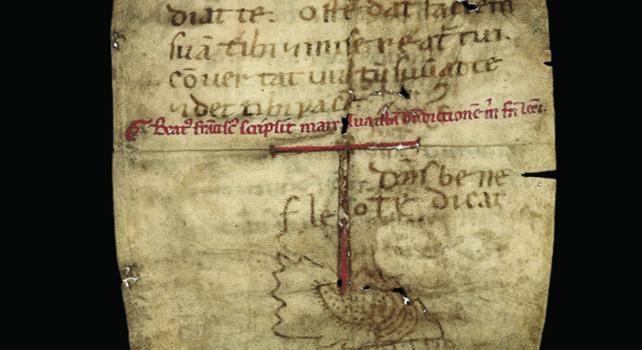 diat te. Ostēdat faciem
suā tibi ⁊ misereat̄ tui.
cōvertat vultū suū ad te
⁊ det tibi pacē
Beatꝰ frācisc̄ scripsit manu sua istā bn̄dictionē m̄ frī leoni.
Dn̄s bene
f leo te dicat